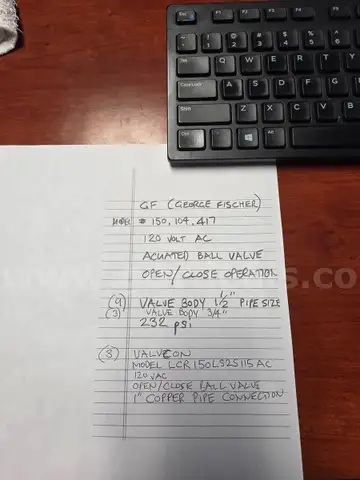 GF (GEORGE FISCHER)
MODEL # 150.104.417
120 VOLT AC
ACUATED BALL VALVE
OPEN/CLOSE OPERATION
(9) VALVE BODY 1 1/2" PIPE SIZE
(3) VALVE BODY 3/4"
232 psi
(3) VALVCON
MODEL LCR150LS2S115AC
120 VAC
OPEN/CLOSE BALL VALVE
1" COPPER PIPE CONNECTION